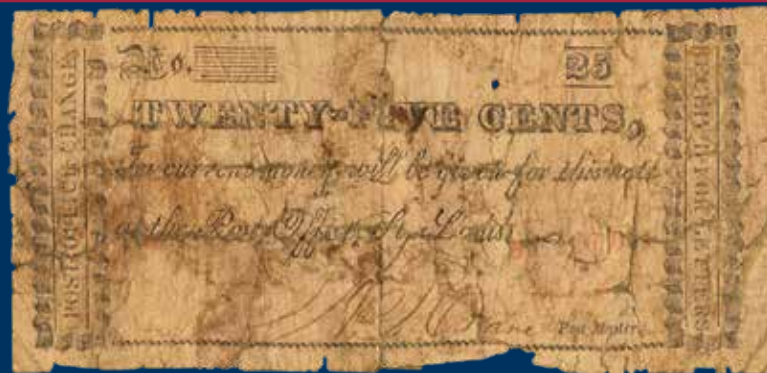 POST OFFICE CHANGE
No.
25
TWENTY-FIVE CENTS,
In current money will be given for this note
at the Post Office, St. Louis
Post-Master
RECEIVE FOR LETTERS